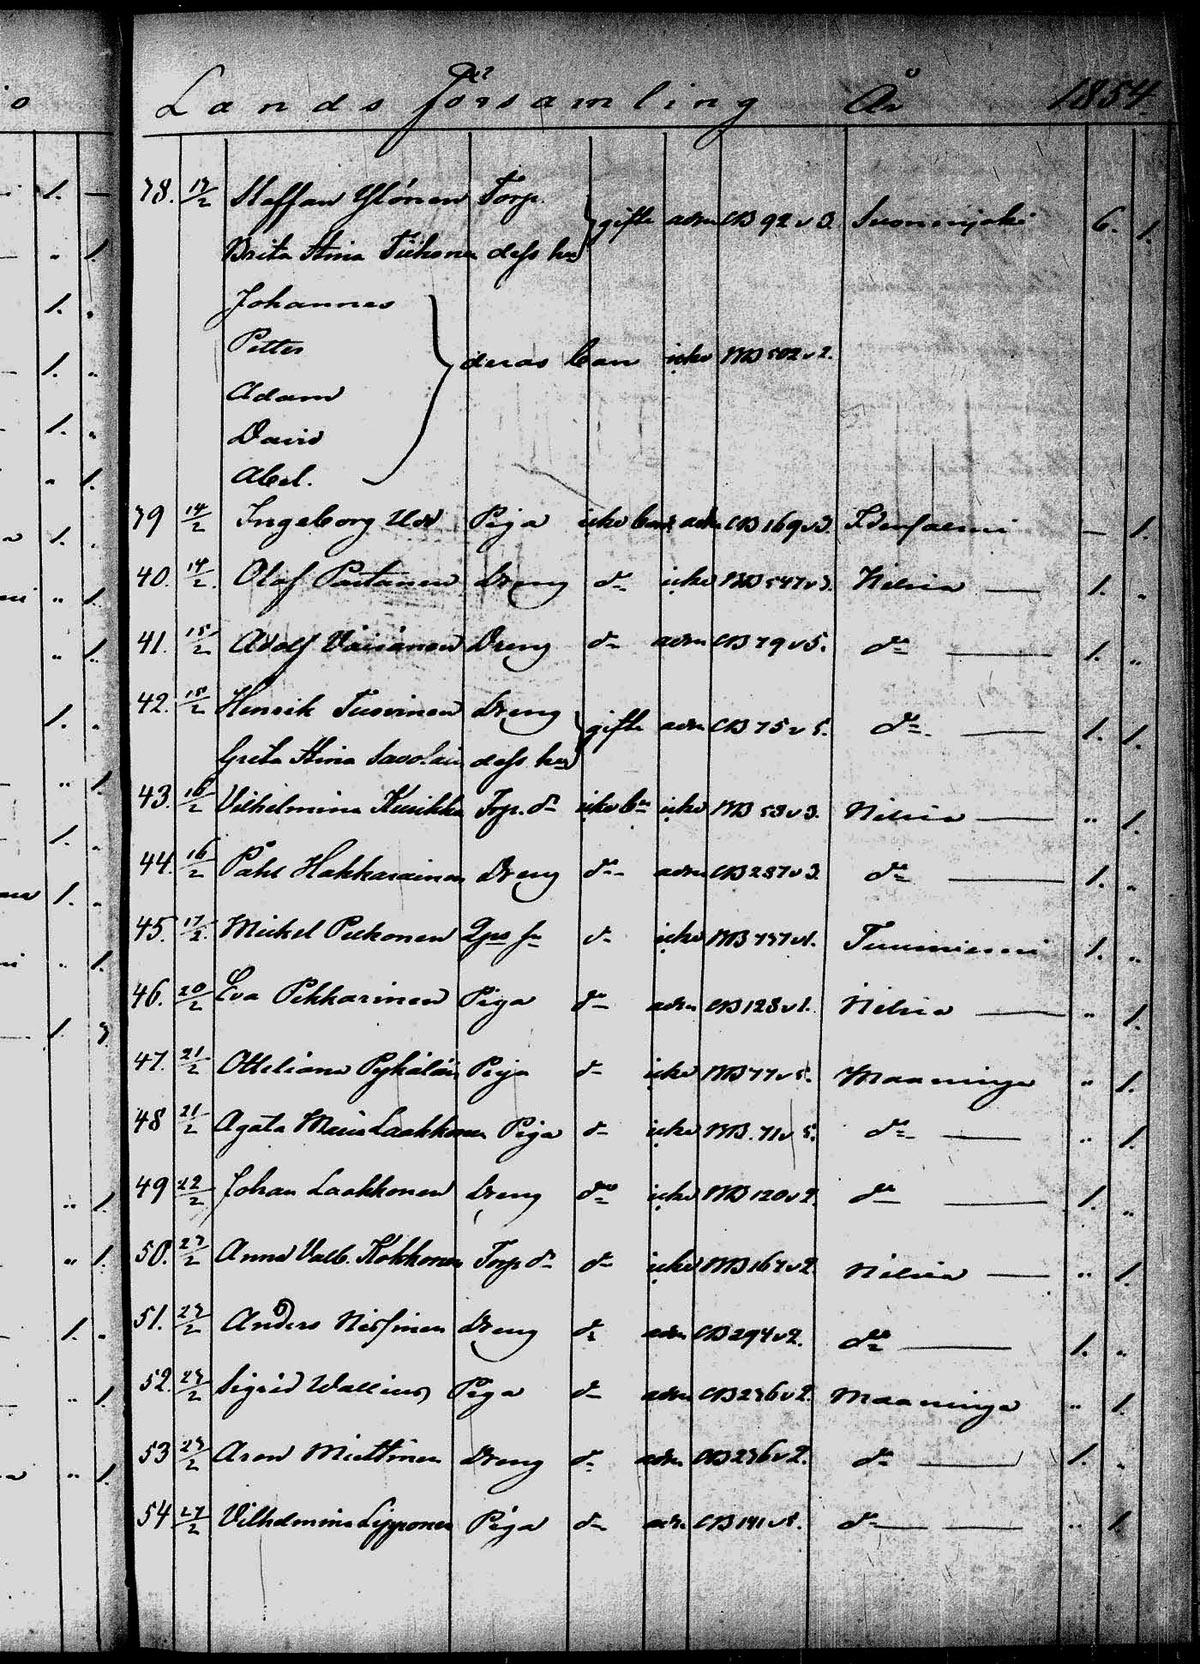 Lands församling År 1854.
38. 13/2 Staffan Ylönen Torp. gifte adm CB 92 v 3. Suoninjoki 6. 1.
Brita Stina Tiihonen dess hu
Johannes
Petter deras barn icke NB 502 v 2.
Adam
David
Abel.
39 14/2 Ingeborg Piga icke adm CB 169 v 3. Idensalmi — 1.
40. 14/2 Olof Partanen Dreng do icke NB 547 v 3. Nilsiä — 1. „
41. 15/2 Adolf Väisänen Dreng do adm CB 79 v 5. do — 1. „
42. 15/2 Henrik Dreng gifte adm CB 75 v 5. do — 1. 1.
Greta Stina Savolain dess hu
43. 16/2 Vilhelmina Kuikka Torp. do icke icke NB 53 v 3. Nilsiä — „ 1.
44. 16/2 Påhl Hakkarainen Dreng do adm CB 237 v 3. do — 1. „
45. 17/2 Mickel Pukonen do icke NB 737 v 1. Tuusniemi 1. „
46. 20/2 Eva Pekkarinen Piga do adm CB 128 v 1. Nilsiä — „ 1.
47. 21/2 Otteliana Pykäläin Piga do icke NB 77 v 5. Maaninga „ 1.
48 21/2 Agata Maria Laakkonen Piga do icke NB. 71 v 5. do — „ 1.
49 22/2 Johan Laakkonen Dreng do icke NB 120 v 2. do — 1. „
50. 23/2 Anna Valb. Kokkonen Torp do do icke NB 167 v 2. Nilsiä — „ 1.
51. 23/2 Anders Nissinen Dreng do adm CB 294 v 2. do — 1. „
52. 23/2 Sigrid Wallius Piga do adm CB 236 v 2. Maaninga „ 1.
53 23/2 Aron Miettinen Dreng do adm CB 236 v 2. do — 1. „
54 27/2 Vilhelmina Lipponen Piga do adm CB 141 v 1. do — — „ 1.